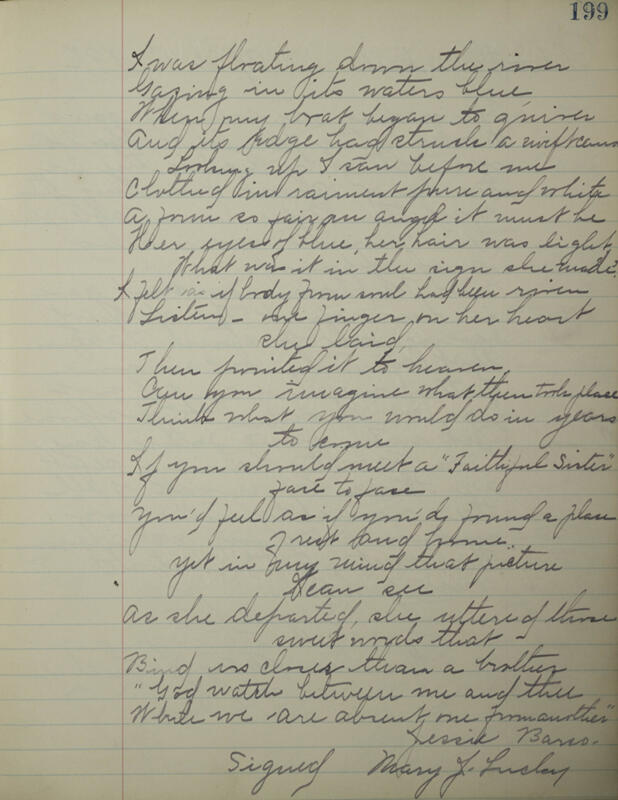 199
I was floating down the river
Gazing in its waters blue
When my boat began to quiver
And its edge had struck a swift
Looking up I saw before me
Clothed in raiment pure and white
A form so fair an angel it must be
Her eyes of blue, her hair was light,
What was it in the sign she made?
I felt as if body from soul had been riven
Listen - one finger on her heart
she laid,
Then pointed it to heaven
Can you imagine what then took place
Think what you would do in years
to come
If you should meet a "Faithful Sister"
face to face
You'd feel as if you'd found a place
of rest and home.
Yet in my mind that picture
I can see
As she departed, she uttered those
sweet words that -
Bind us closer than a brother
"God watch between me and thee
While we are absent one from another"
Jessie
Signed Mary J.